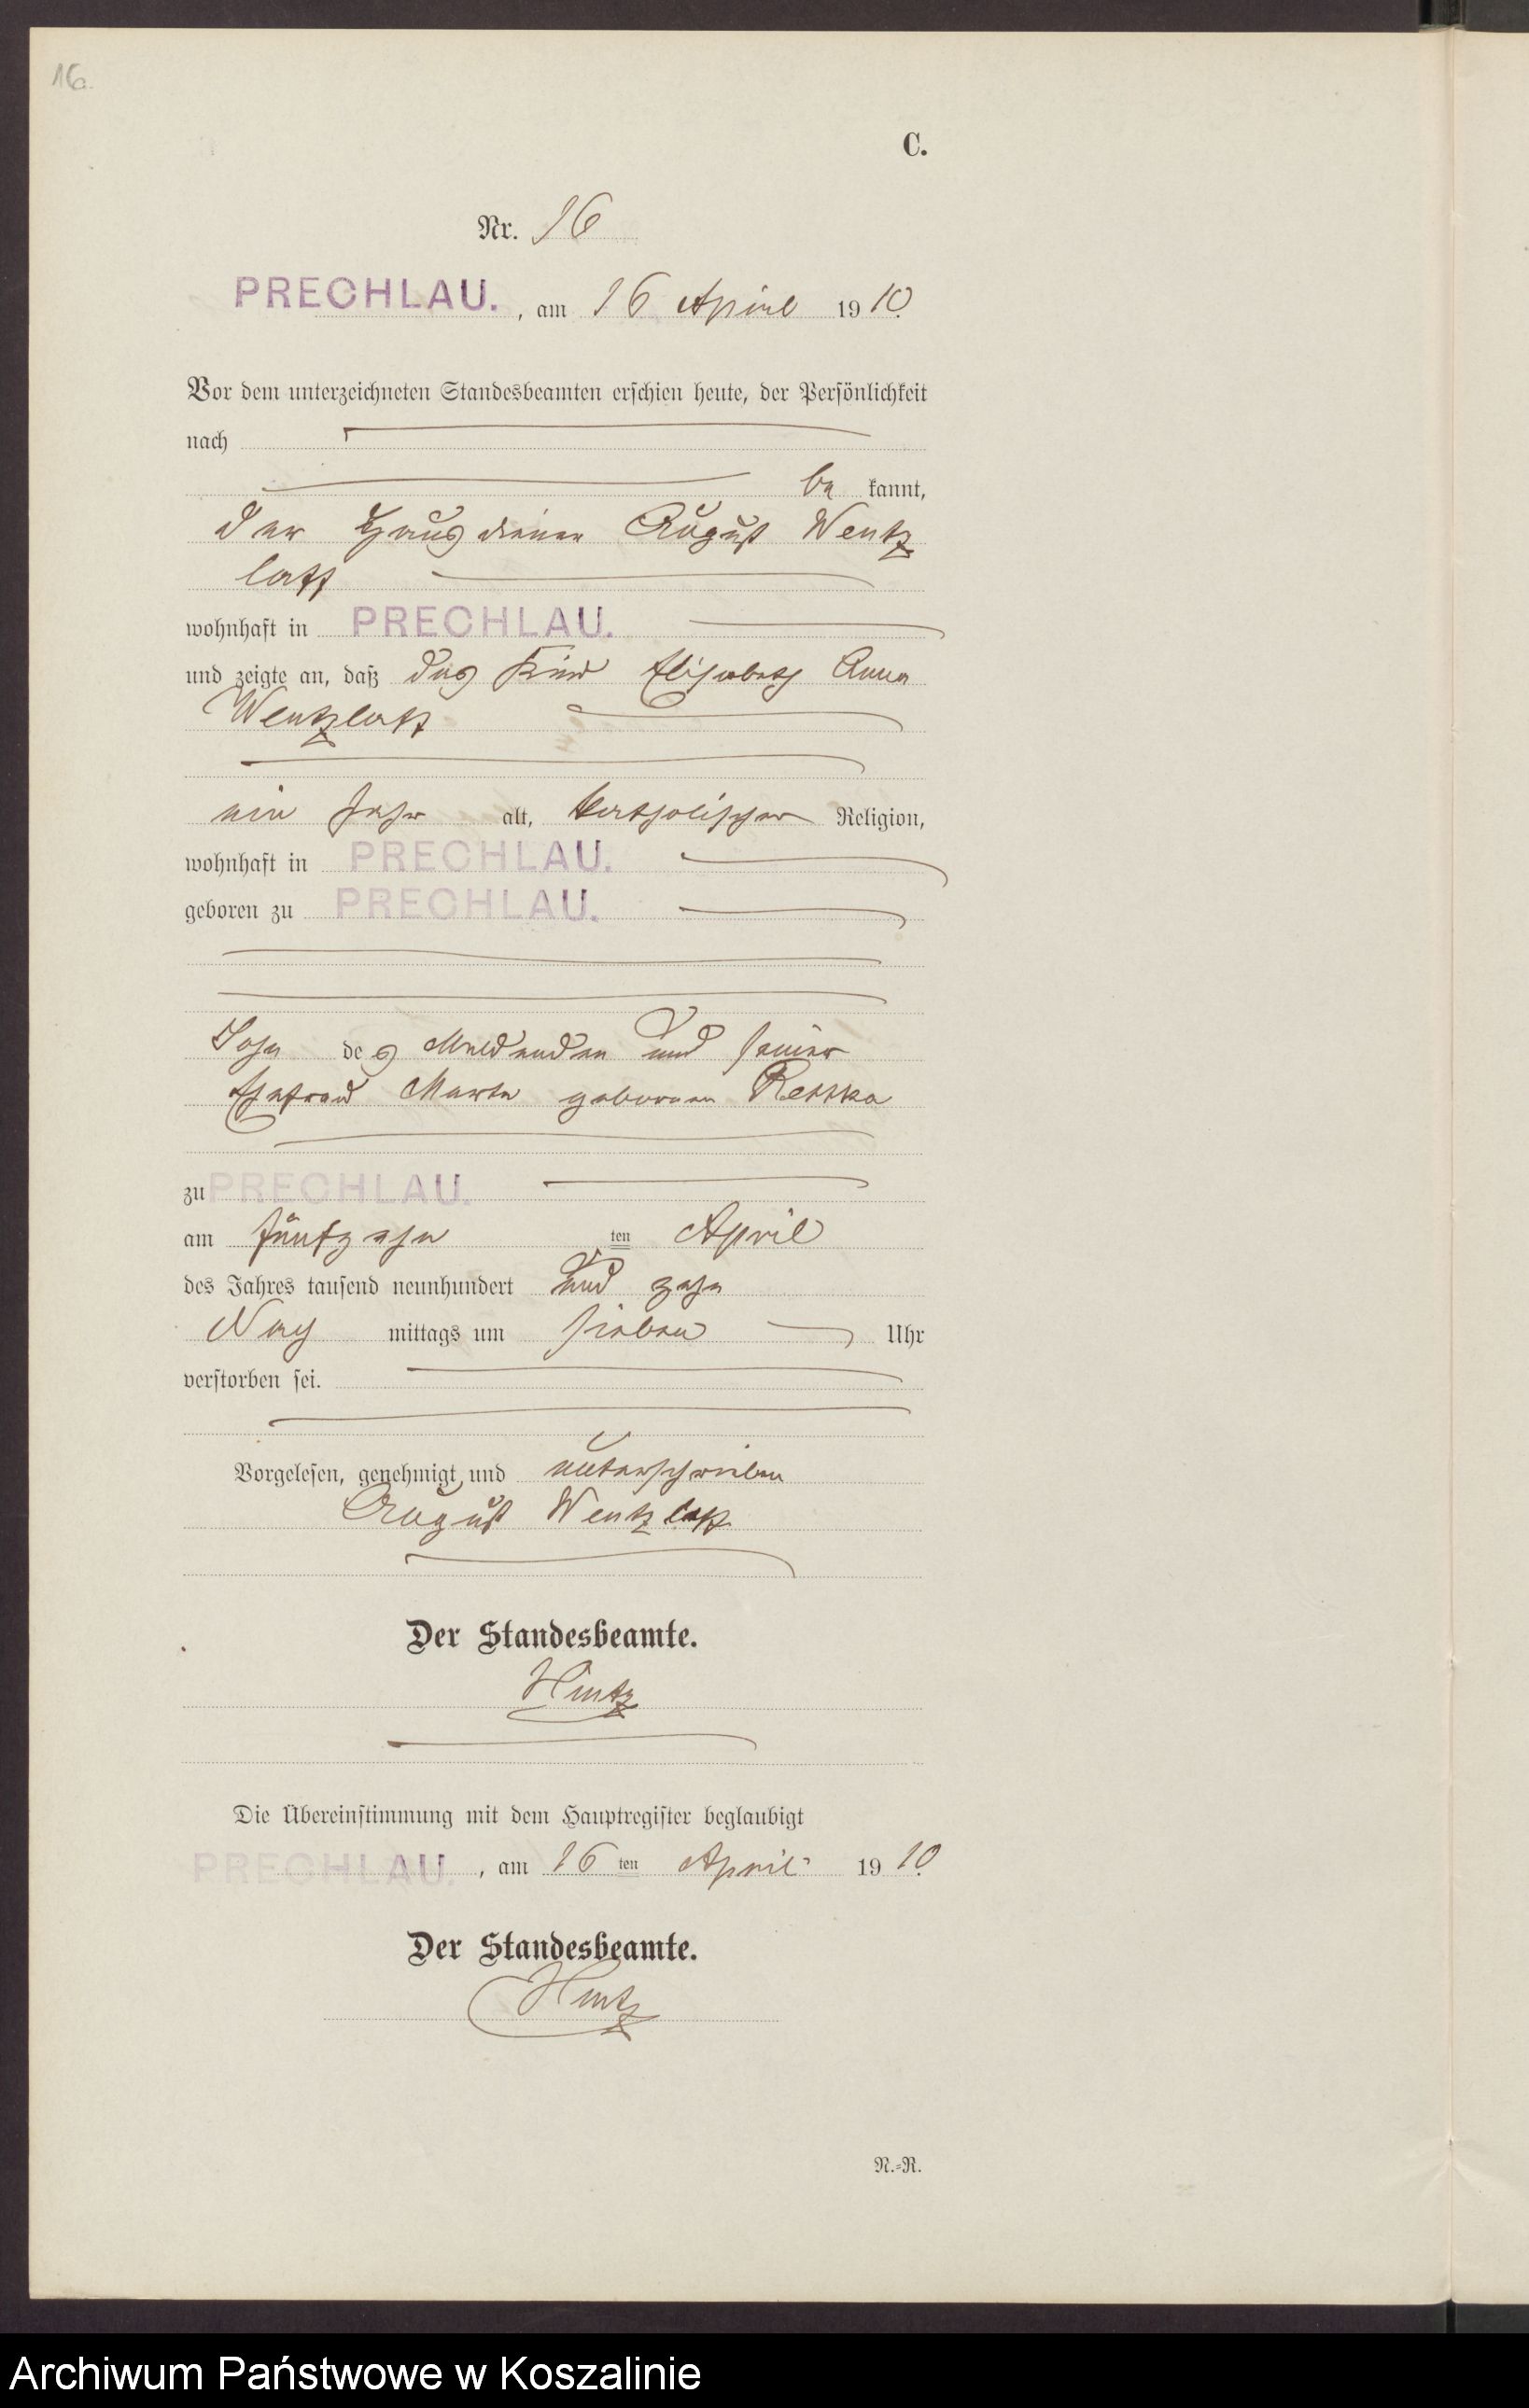 16.
C.
Nr. 16
PRECHLAU. , am 16 April 1910.
Vor dem unterzeichneten Standesbeamten erschien heute, der Persönlichkeit
nach
be kannt,
der Hausdiener August Wentz
laff
wohnhaft in PRECHLAU.
und zeigte an, daß das Kind Elisabeth Anna
Wentzlaff
ein Jahr alt, katholischer Religion,
wohnhaft in PRECHLAU.
geboren zu PRECHLAU.
Sohn des Meldenden und seiner
Ehefrau geborenen
zu PRECHLAU.
am fünfzehn ten April
des Jahres tausend neunhundert und zehn
Nach mittags um sieben Uhr
verstorben sei.
Vorgelesen, genehmigt und unterschrieben
August Wentzlaff
Der Standesbeamte.
Hintz
Die Übereinstimmung mit dem Hauptregister beglaubigt
PRECHLAU. , am 16 ten April 1910.
Der Standesbeamte.
Hintz
N.=R.
Archiwum Państwowe w Koszalinie